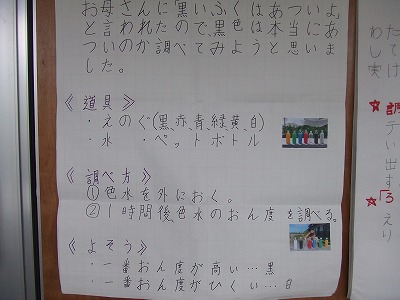 お母さんに「黒いふくはあついよ。」
と言われたので、黒色は本当にあ
ついのか調べてみようと思いま
した。
《道具》
・えのぐ(黒,赤,青,緑,黄,白)
・水 ・ペットボトル
《調べ方》
①色水を外におく。
②1時間後、色水のおん度を調べる。
《よそう》
・一番おん度が高い…黒
・一番おん度がひくい…白